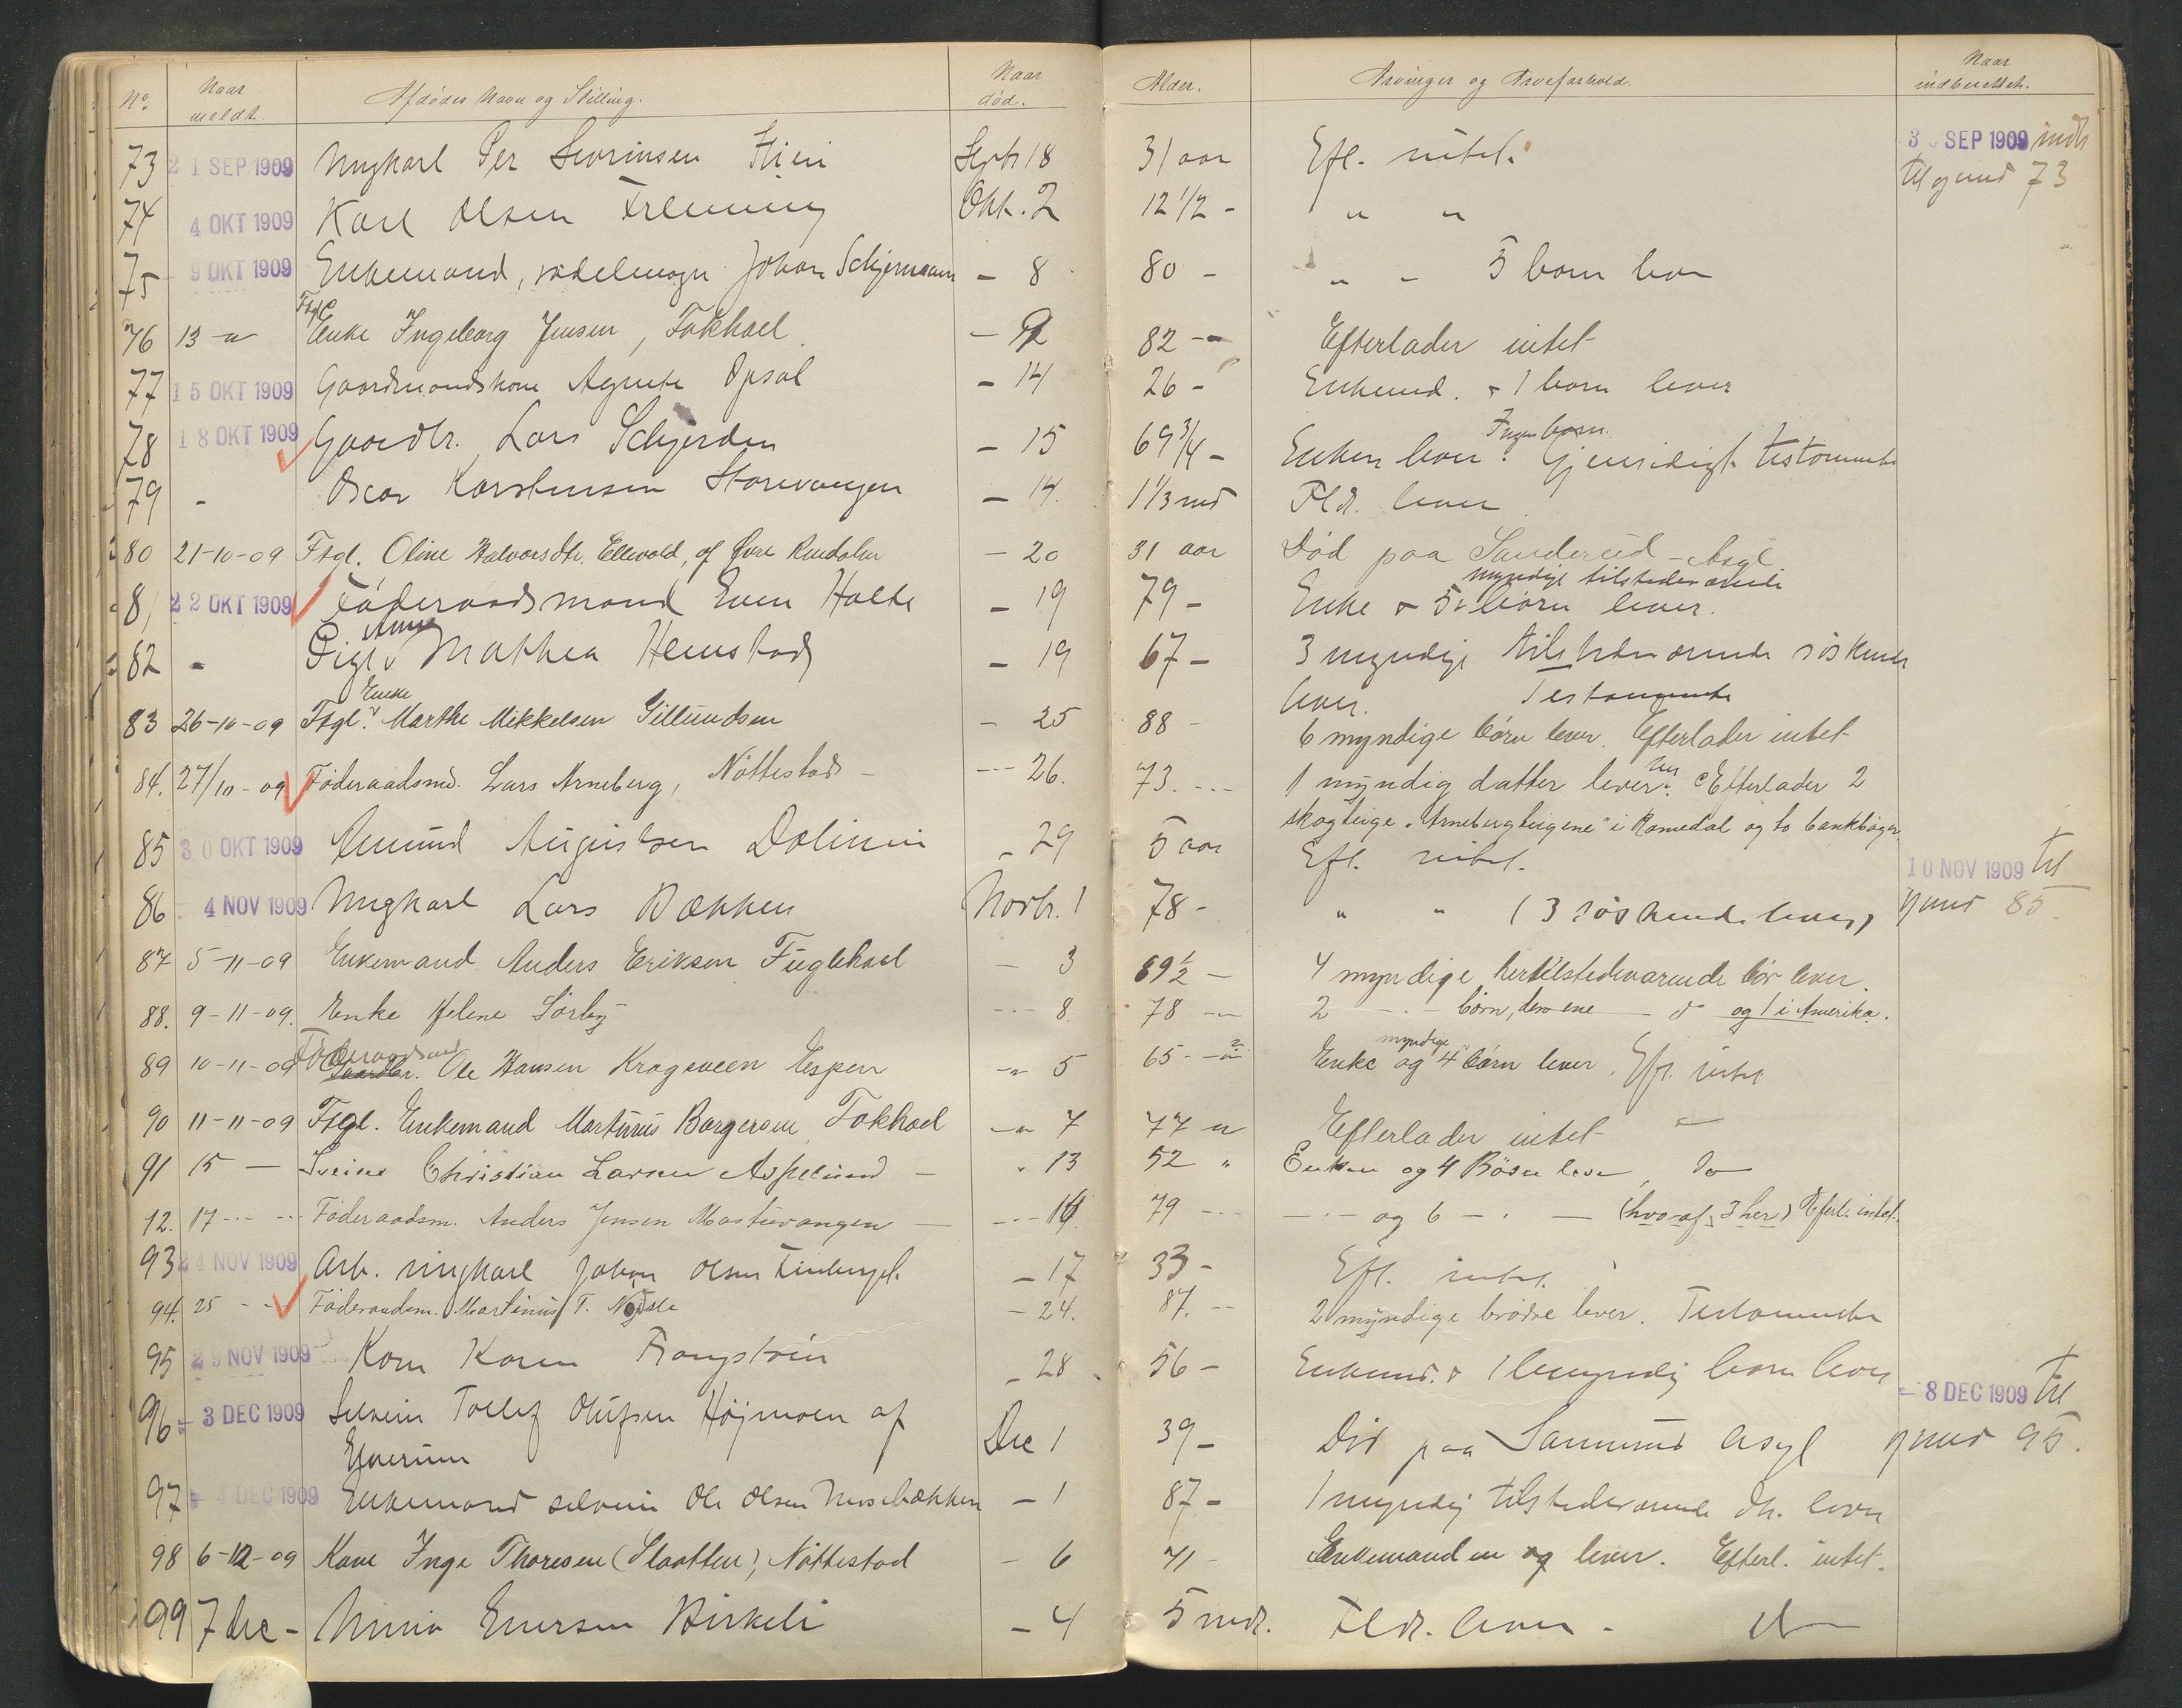 No. Naar meldt. Afdødes Navn og Stilling. Naar død. Alder. Arvinger og Arveforhold. Naar indberettet.
73 21 SEP 1909 Ungkarl Per Sevrinsen Septbr 18 31 aar Efl. intet. 30 SEP 1909 indb
til og med 73
74 4 OKT 1909 Karl Olsen Okt. 2 12 1/2 - " "
75 - 9 OKT 1909 Enkemand, sadelmager Johan Schjermann - 8 80 - " - 5 børn lever
76 13 - " Fsgl Enke Ingeborg Jensen, Fokhoel - 12 82 - Efterlader intet
77 15 OKT 1909 Gaardmandskone Agnete Opsal - 14 26 - Enkemd. + 1 barn lever
78 18 OKT 1909 Gaardbr. Lars Schjerden - 15 69 3/4 - Enken lever. Ingen børn. Gjensidigt testamente
79 - Oscar Karstensen Storevangen - 14. 1 1/3 md Fldr. lever
80 21-10-09 Fsgl. Oline Halvorsdtr. Ellevold, af Øvre Rendalen - 20 31 aar Død paa Sanderud Asyl
81 22 OKT 1909 Føderaadsmand Even Holte - 19 79 - Enke + 5 myndige tilstedeværende børn lever.
82 - Pige Anne Mathea Hemstad - 19 67 - 3 myndige tilstedeværende søskende
lever. Testamente
83 26-10-09 Fsgl. Enke Marthe Mikkelsen Gillundsen - 25 88 - 6 myndige børn lever. Efterlader intet
84. 27/10-09 Føderaadsmd. Lars Arneberg, Nøttestad - --- 26. 73. --- 1 myndig datter lever her. Efterlader 2
skogteige "Arnebergteigene" i Romedal og to bankbøger
85 30 OKT 1909 Amund Augustsen Dolimoen - 29 5 aar Efl. intet. 10 NOV 1909 til
86 - 4 NOV 1909 Ungkarl Lars Bækken Novbr. 1 78 - " " (3 søskende lever) og med 85.
87 5-11-09 Enkemand Anders Eriksen Fuglehoel - 3 69 1/2 - 4 myndige hertilstedeværende bør lever.
88. 9-11-09. Enke Helene Sørby --- 8. 78 -- 2 - . - børn, den ene og 1 i Amerika.
89 10-11-09 Føderaadsmd Gaardbr. Ole Hansen Kragsveen Espen -" 5 65 - Enke og 4 myndige børn lever. Efl. intet
90 11-11-09 Fsgl. Enkemand Martinus Borgersen Fokhoel -" 7 77 " Efterlader intet -
91 15 - Sveiser Christian Larsen Aspelund - " 13 52 " Enken og 4 Børn lever, do
12. 17 --- --- Føderaadsm. Anders Jensen Mostuvangen - --- 14. 79 --- - . - og 6 - . - (hvo-af 3 her) Efterl. intet.
93 24 NOV 1909 Arb. ungkarl Johan Olsen - 17 33 - Efl. intet.
94. 25 - - Føderaadsm. Martinus T. - 24. 87. -- 2 myndige brødre lever. Testamente
95 29 NOV 1909 Kone Karen - 28 56 - Enkemd. + 1 umyndig barn lever - 8 DEC 1909 til
96 - 3 DEC 1909 Selveier Tollef Olufsen Højmoen af
Elverum Dec 1 39 - Død paa Sanderud Asyl og med 95.
97 - 4 DEC 1909 Enkemand selveier Ole Olsen Mosebækken - 1 87 - 1 myndig tilstedeværende dtr. lever
98 6-12-09 Kone Inge Thoresen (Slaatten), Nøttestad - 6 71 - Enkemanden lever. Efterl. intet.
99 7 dec - Minia Enersen Birkeli - 4 5 mdr. Fldr. lever -